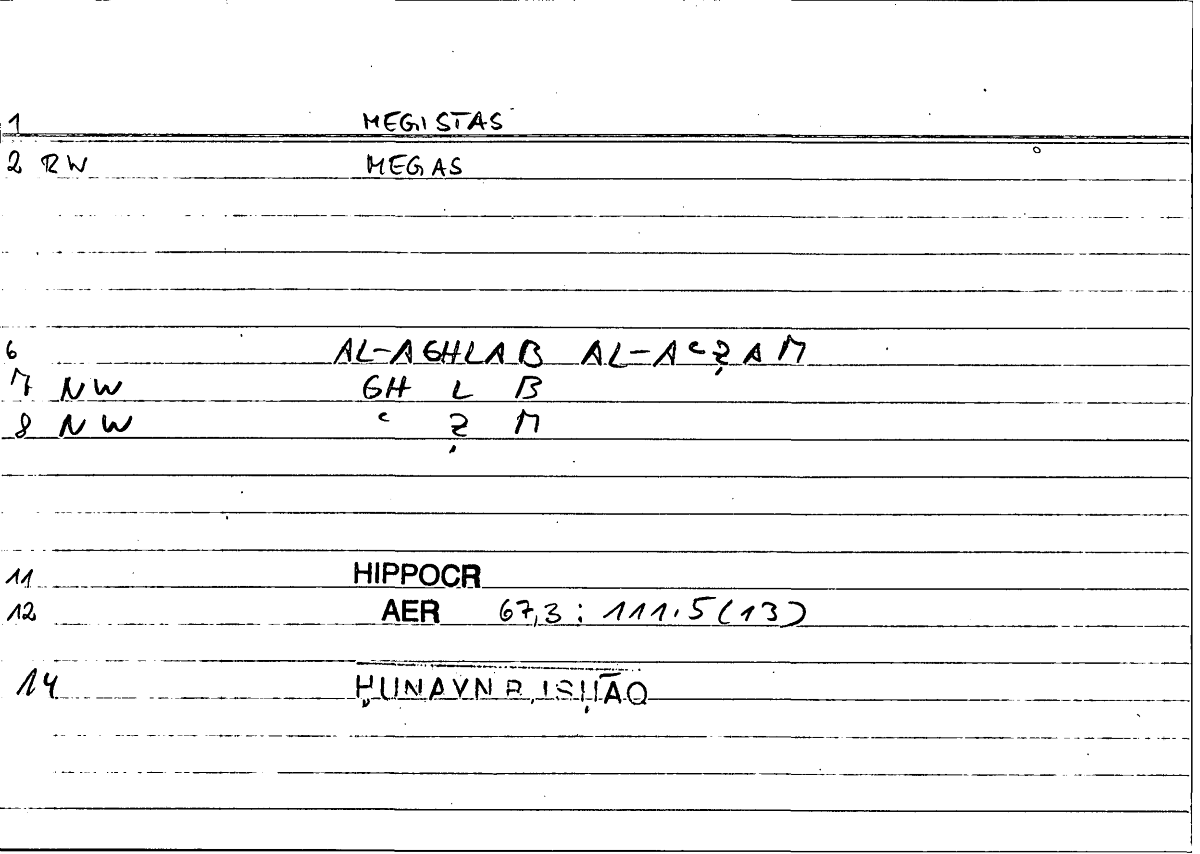 1 MEGISTAS
2 RW MEGAS
6 AL-AGHLAB AL-AʿẒAM
7 NW GH L B
8 NW ʿ Ẓ M
11 HIPPOCR
12 AER 67,3 : 111.5(13)
14 ḤUNAYN B. ISḤĀQ